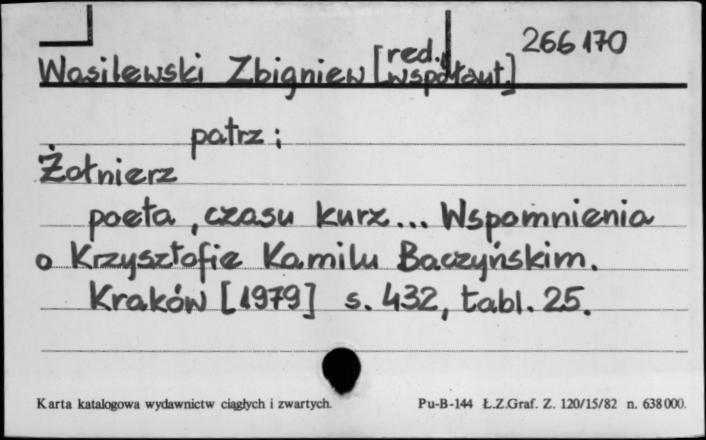 266170
Wasilewski Zbigniew [red.,
współaut.]
patrz:
Żołnierz
poeta, czasu kurz... Wspomnienia
o Krzysztofie Kamilu Baczyńskim.
Kraków [1979] s. 432, tabl. 25.
Karta katalogowa wydawnictw ciągłych i zwartych. Pu-B-144 Ł.Z.Graf. Z. 120/15/82 n. 638000.